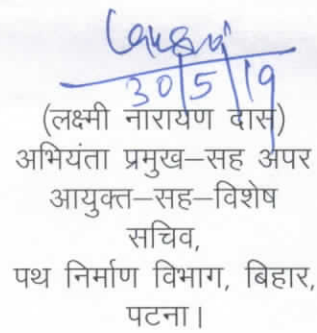 30/5/19
(लक्ष्मी नारायण दास)
अभियंता प्रमुख–सह अपर
आयुक्त–सह–विशेष
सचिव,
पथ निर्माण विभाग, बिहार,
पटना।